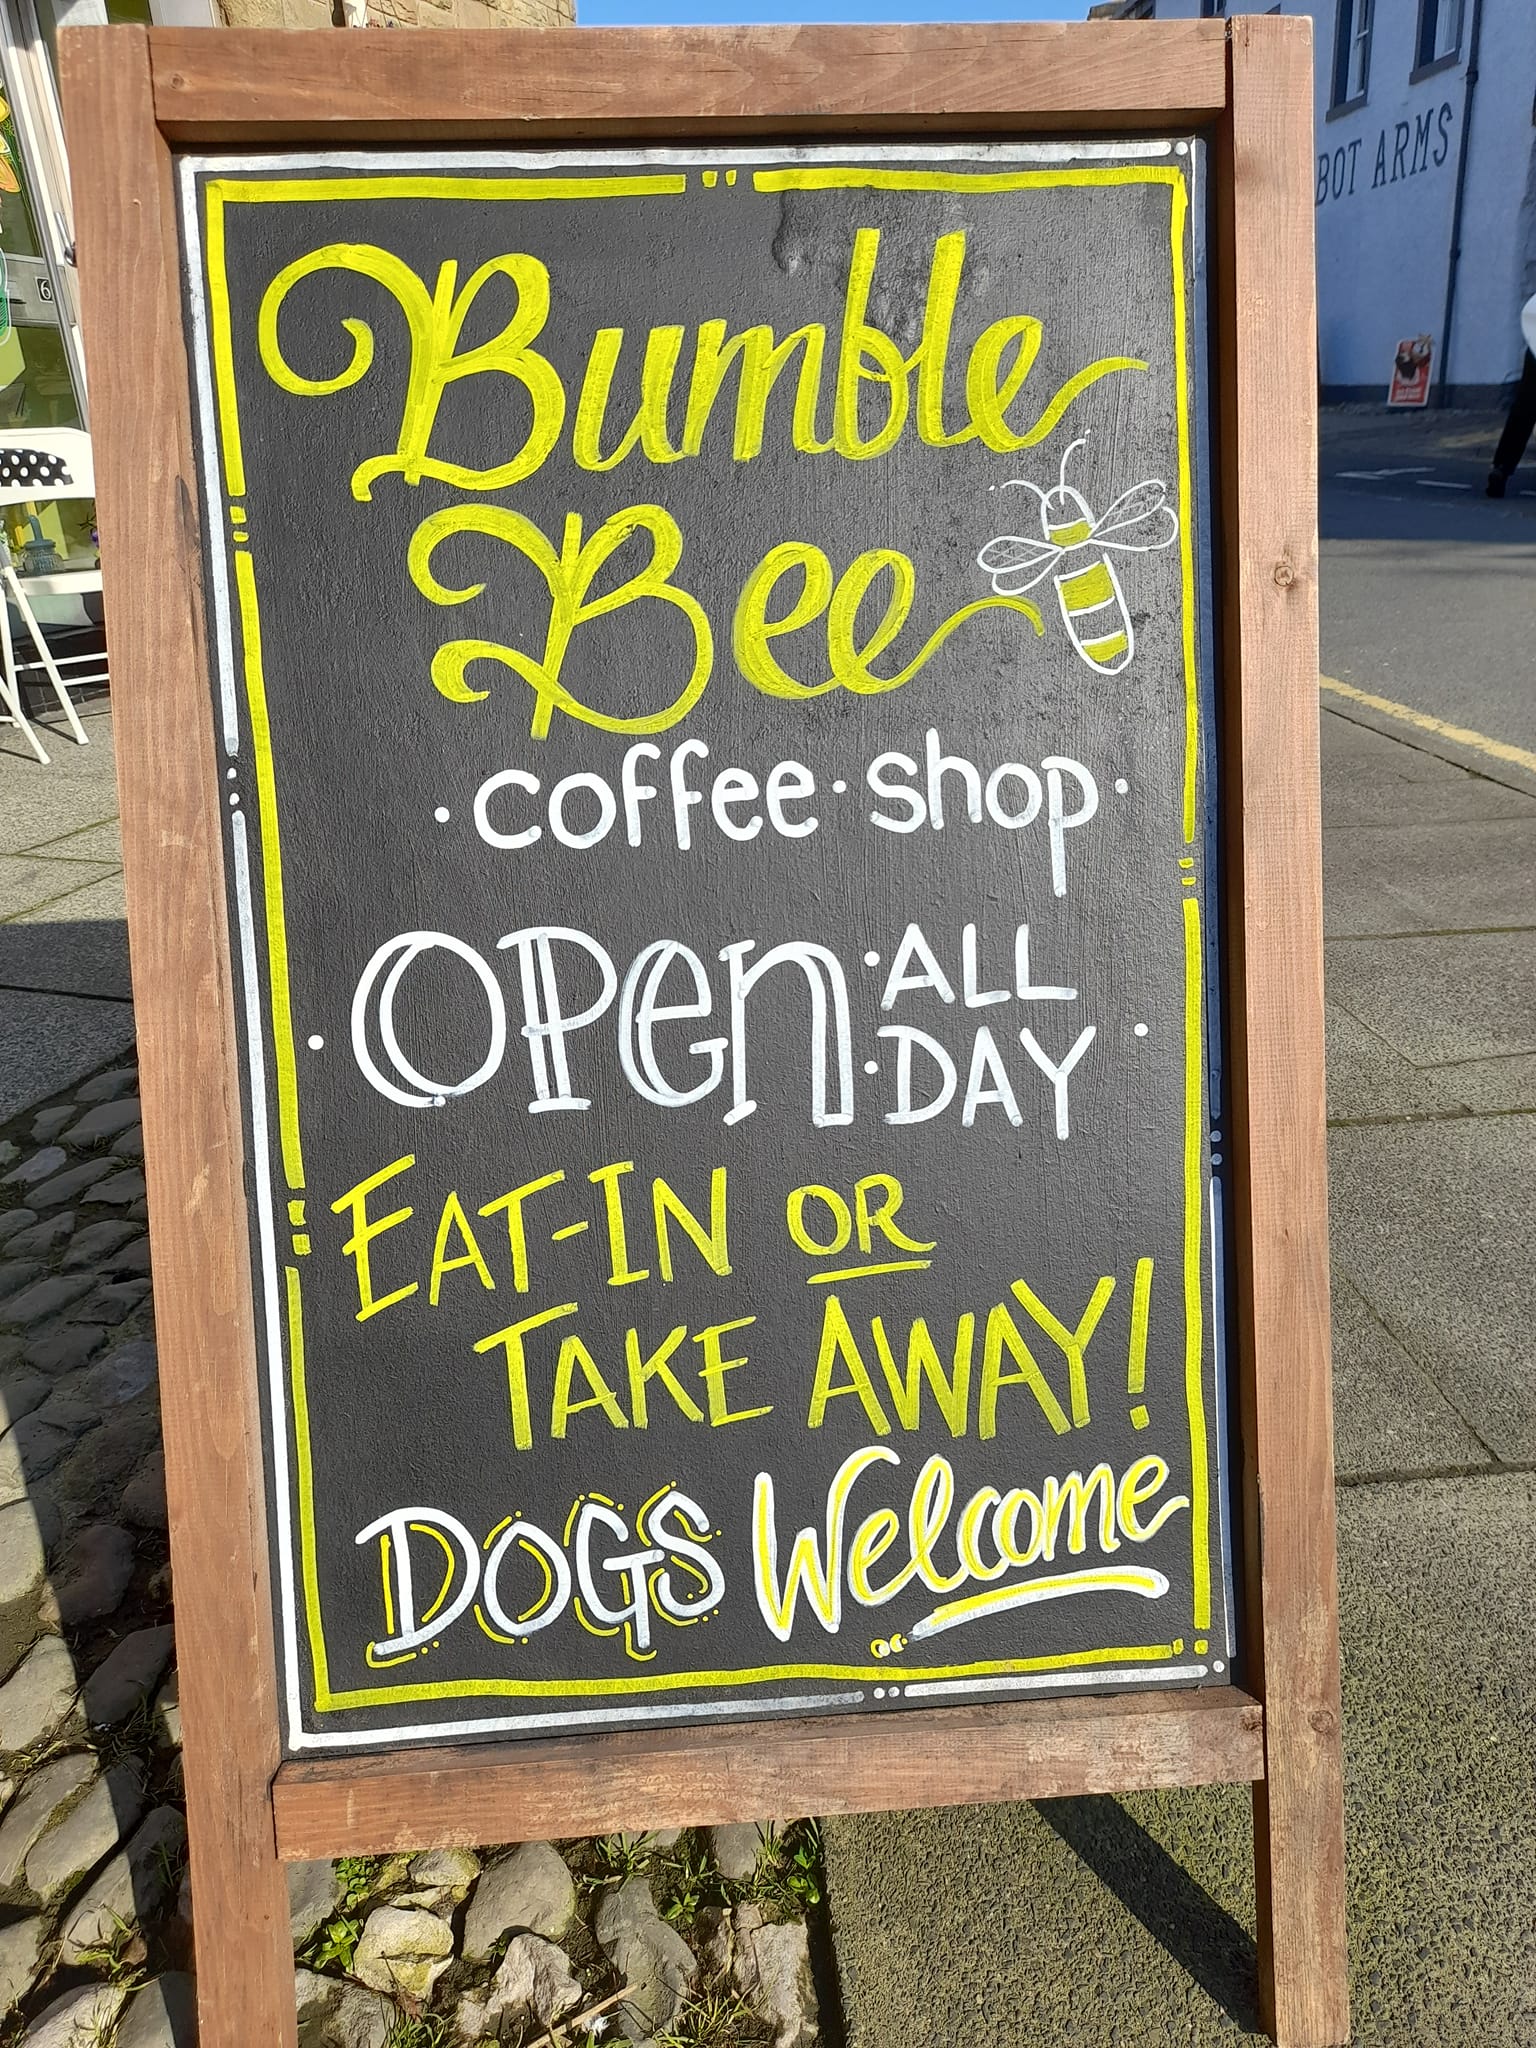 Bumble
Bee
coffee · shop
OPEN ALL
DAY
EAT-IN OR
TAKE AWAY!
DOGS Welcome
BOT ARMS
6